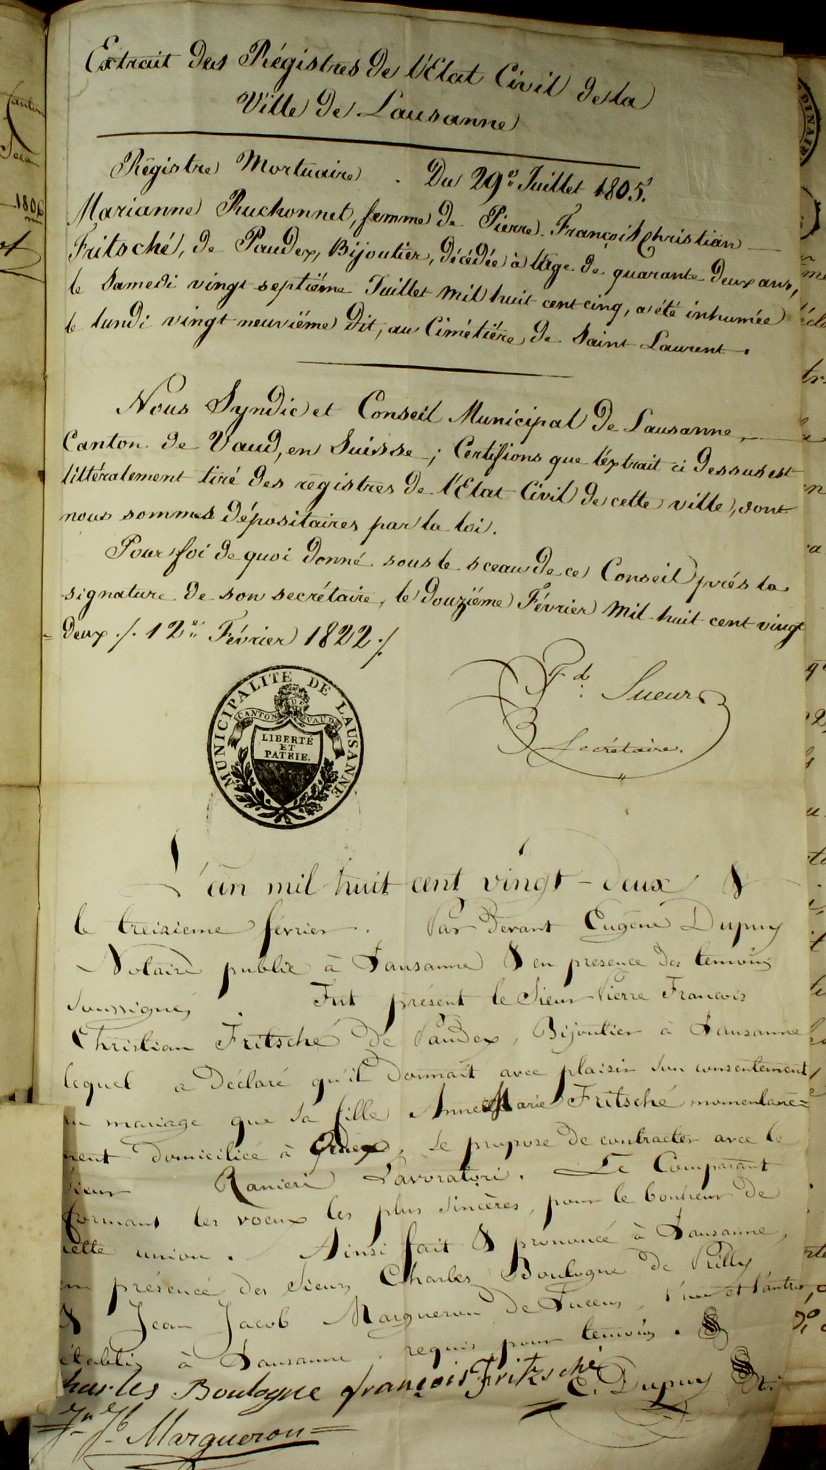 Extrait des Régistres de l'Etat Civil de la
Ville de Lausanne
Régistre Mortuaire. Du 29e Juillet 1805.
Marianne Ruchonnet, femme de Pierre François Christian
Fritsché, de Paudex, Bijoutier, décédée à l'âge de quarante deux ans,
le Samedi vingt septième Juillet mil huit cent cinq, a été inhumée
le lundi vingt neuvième dit, au Cimétière de Saint Laurent.
Nous Syndic et Conseil Municipal de Lausanne,
Canton de Vaud, en Suisse; Certifions que l'extrait ci dessus est
littéralement tiré des registres de l'Etat Civil de cette ville, dont
nous sommes dépositaires par la loi.
Pour foi de quoi donné sous le sceau de ce Conseil près la
signature de son secrétaire, le douzième Février mil huit cent vingt
deux ./. 12e Février 1822 ./.
MUNICIPALITE DE LAUSANNE
CANTON VAUD
LIBERTÉ
ET
PATRIE.
Fd. Sueur
Secrétaire.
L'an mil huit cent vingt-deux &
le treizieme février. Par devant Eugène Dupuy
Notaire public à Lausanne & en presence des temoins
soussignés, Fut présent le Sieur Pierre François
Christian Fritsché de Paudex, Bijoutier à Lausanne
lequel a déclaré qu'il donnait avec plaisir son consentement
au mariage que sa fille Anne Marie Fritsché momentané=
ment domiciliée à se propose de contracter avec le
Sieur Ranieri Lavoratori. Le Comparant
formant les voeux les plus sincères, pour le bonheur de
cette union. Ainsi fait & prononcé à Lausanne,
en présence des Sieurs Charles Boulogne de Prilly
& Jean Jacob Margueron de Lucens, l'un et l'autre
établis à Lausanne requis pour temoins.
Charles Boulogne françois Fritsché E. Dupuy
Jn Jb Margueron